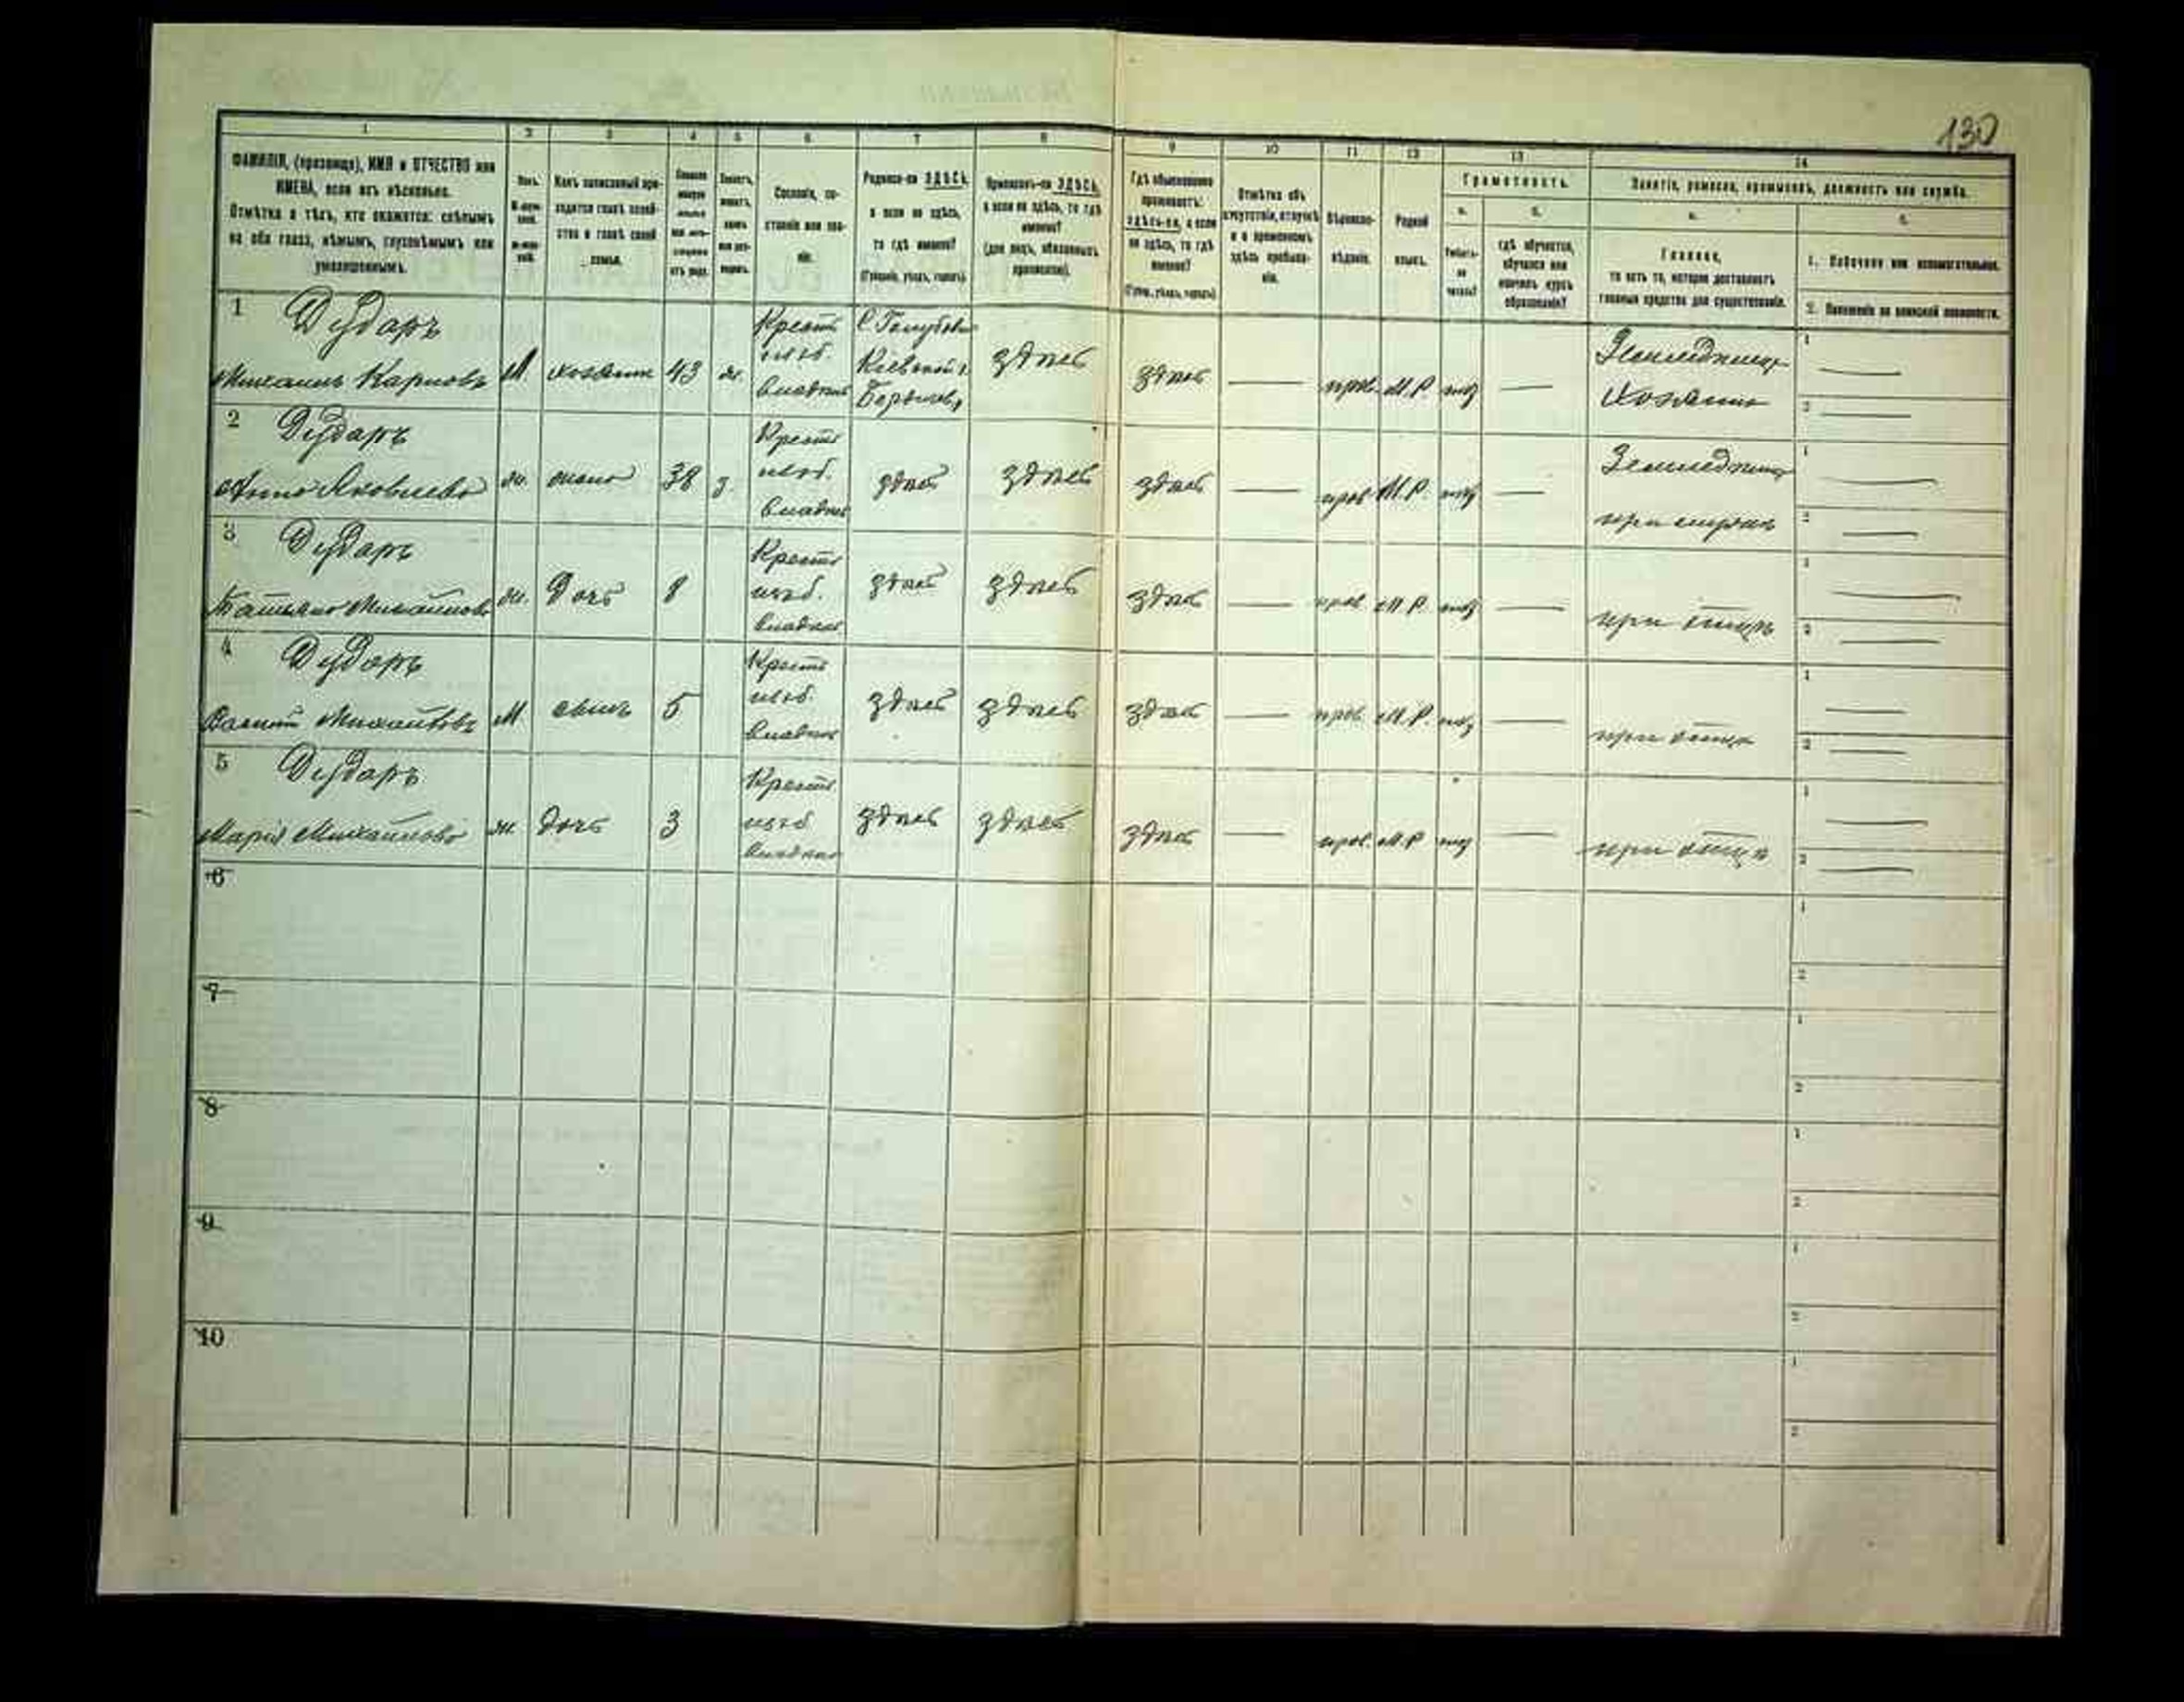 130
1 2 3 4 5 6 7 8 9 10 11 12 13 14
ФАМИЛІЯ, (прозвище), ИМЯ и ОТЧЕСТВО или
ИМЕНА, если ихъ нѣсколько.
Отмѣтка о тѣхъ, кто окажется: слѣпымъ
на оба глаза, нѣмымъ, глухонѣмымъ или
умалишеннымъ.
Полъ.
Какъ записанный при-
ходится главѣ хозяй-
ства и главѣ своей
семьи.
Сословіе, со-
стояніе или зва-
ніе.
Родился-ли ЗДѢСЬ,
а если не здѣсь,
то гдѣ именно?
(Губернія, уѣздъ, городъ)
Приписанъ-ли ЗДѢСЬ,
а если не здѣсь, то гдѣ
именно?
(для лицъ, обязанныхъ
припиской).
Гдѣ обыкновенно
проживаетъ:
здѣсь-ли, а если
не здѣсь, то гдѣ
именно?
(Губ., уѣздъ, городъ)
Отмѣтка объ
отсутствіи, отлучкѣ
и о временномъ
здѣсь пребыва-
ніи.
Вѣроиспо-
вѣданіе.
Родной
языкъ.
Грамотность.
а. б.
Умѣетъ-
ли
читать?
гдѣ обучается,
обучался или
кончилъ курсъ
образованія?
Занятіе, ремесло, промыселъ, должность или служба.
а. б.
Главное,
то есть то, которое доставляетъ
главныя средства для существованія.
1. Побочное или вспомогательное.
2. Положеніе по воинской повинности.
1 Дударъ
Михаилъ Карповъ М хозяинъ 43 ж.
Крест.
изъ б.
Владѣл.
С. Голубов
Кіевской г.
Бердичев.
здѣсь здѣсь — прав. М.Р. —
Земледѣлец
Хозяинъ
1 —
2 —
2 Дударъ
Анна Яковлева ж. жена 38 з.
Крест
изъ б.
Владѣл
здѣсь здѣсь здѣсь — прав М.Р. —
Земледѣлец
при мужѣ
1 —
2 —
3 Дударъ
Татьяна Михайлова ж. дочь 8
Крест
изъ б.
Владѣл
здѣсь здѣсь здѣсь — прав М.Р. —
при отцѣ
1 —
2 —
4 Дударъ
Михайловъ М сынъ 5
Крест
изъ б.
Владѣл
здѣсь здѣсь здѣсь — прав М.Р. —
при отцѣ
1 —
2 —
5 Дударъ
Марія Михайлова ж. дочь 3
Крест
изъ б
Владѣл
здѣсь здѣсь здѣсь — прав. М.Р —
при отцѣ
1 —
2 —
6
1
2
7
1
2
8
1
2
9
1
2
10
1
2